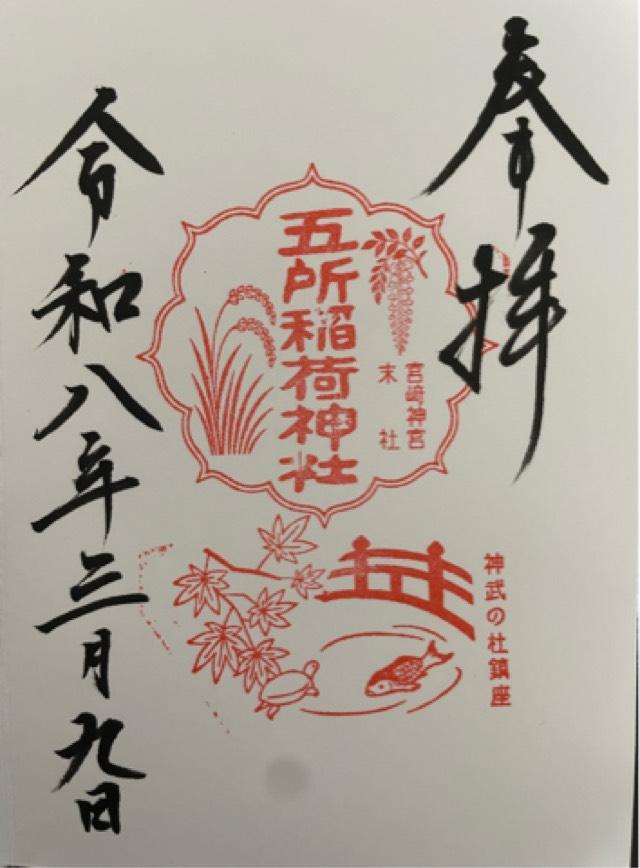 奉拝
宮崎神宮
末社
五所稲荷神社
神武の杜鎮座
令和八年三月九日